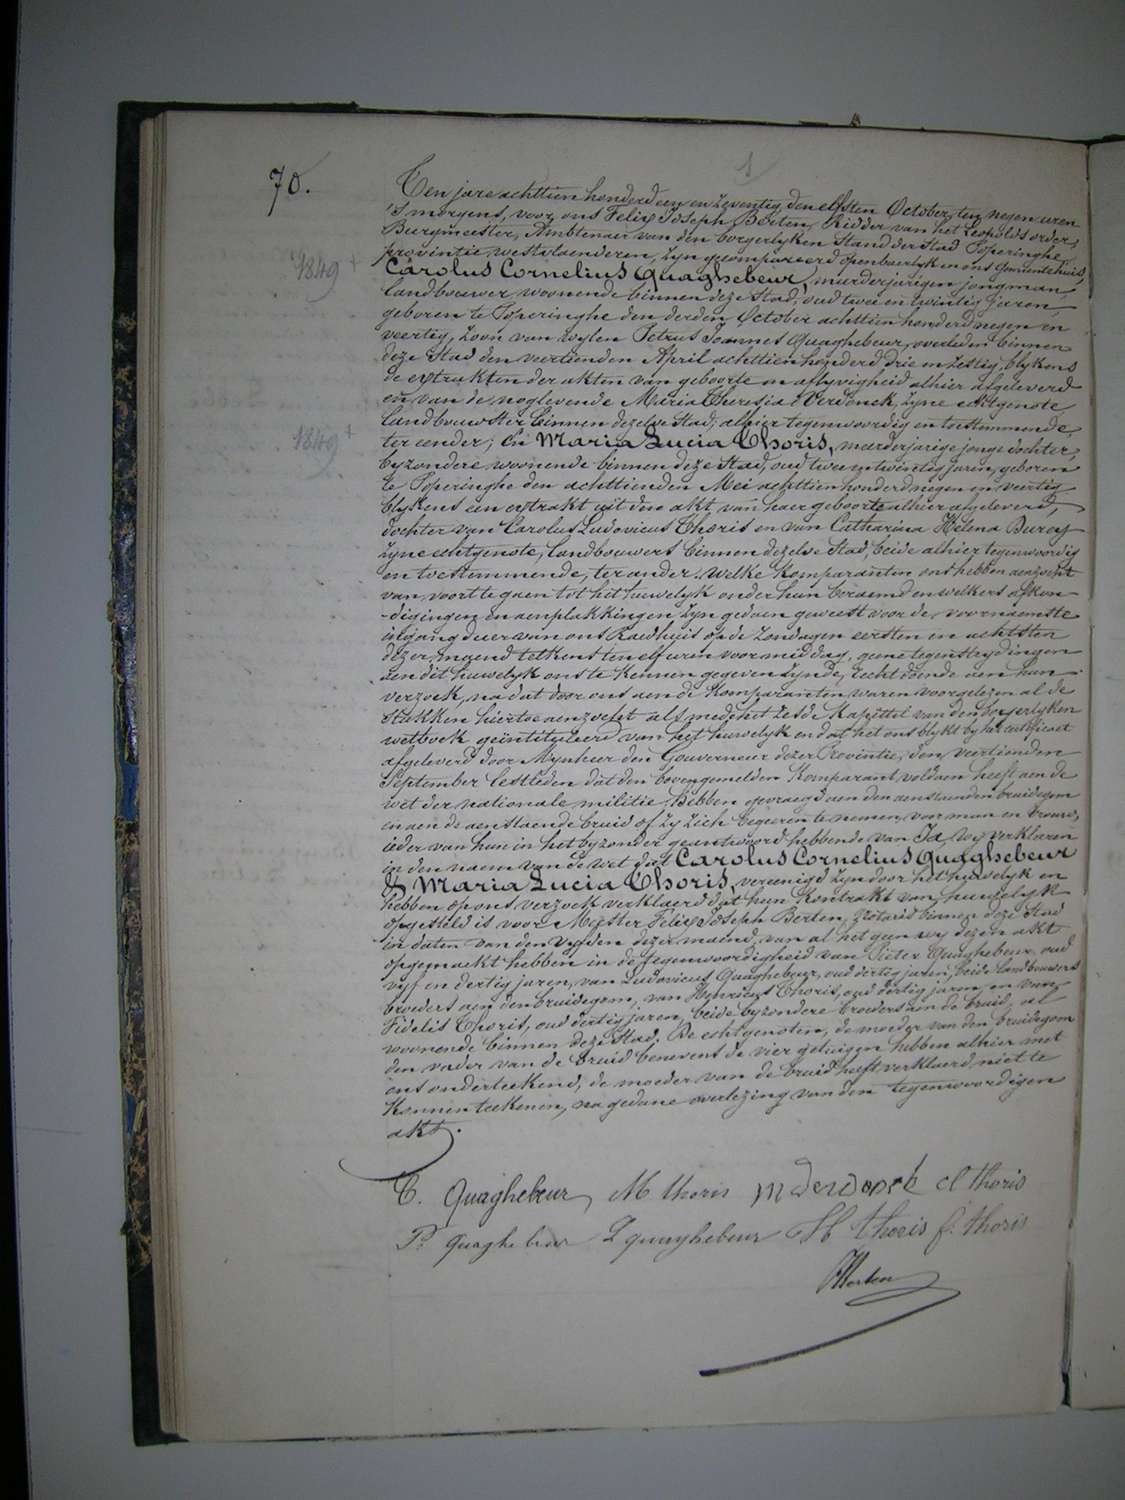 70.
1
Ten jare achttien honderd een en zeventig den elfsten October, ten negen uren
'S morgens, voor ons Felix Joseph Berten, Ridder van het Leopold's order,
Burgmeester, Ambtenaer van den borgerlyken Stand der Stad Poperinghe,
provintie westvlaenderen, zyn gecompareerd openbaerlyk en ons Gemeentehuis,
1849 +
Carolus Cornelius Quaghebeur, meerderjarigen jongman,
landbouwer woonende binnen deze Stad, oud twee en twintig jaren,
geboren te Poperinghe den derden October achttien honderd negen en
veertig, zoon van wylen Petrus Joannes Quaghebeur, overleden binnen
deze Stad den veertienden April achttien honderd drie en zestig, blykens
de extrakten der akten van geboorte en aflyvigheid alhier afgeleverd
en van de noglevende Maria Theresia Verdonck, zyne echtgenote
landbouwster binnen dezelve Stad, alhier tegenwoordig en toestemmende,
1849 +
ter eender; En Maria Lucia Thoris, meerderjarige jonge dochter,
byzondere woonende binnen deze Stad, oud twee en twintig jaren, geboren
te Poperinghe den achttienden Mei achttien honderd negen en veertig
blykens een extrakt uit den akt van haer geboorte alhier afgeleverd,
dochter van Carolus Ludovicus Thoris en van Catharina Helena
zyne echtgenote, landbouwers binnen dezelve Stad, beide alhier tegenwoordig
en toestemmende, ter ander. Welke komparanten ons hebben aenzocht
van voort te gaen tot het huwelyk onder hun beraemd en welkers afkon-
-digingen en aenplakkingen zyn gedaen geweest voor de voornaemste
uitgang deur van ons Raedhuis op de Zondagen eersten en achtsten
dezer maend telkens ten elf uren voormiddag, geene tegenstrydingen
aen dit huwelyk ons te kennen gegeven zynde, recht doende aen hun
verzoek, na dat door ons aen de komparanten waren voorgelezen al de
stukken hiertoe aenzocht als mede het zesde kapittel van den borgerlyken
wetboek geintituleerd van het huwelyk en dat het ons blykt by het certificaet
afgeleverd door Mynheer den Gouverneur dezer Provintie, den veertienden
September lestleden dat den bovengemelden komparant voldaen heeft aen de
wet der nationale militie. Hebben gevraegd aen den aenstaenden bruidegom
en aen de aenstaende bruid of zy zich begeeren te nemen, voor man en vrouw,
ieder van hun in het byzonder geantwoord hebbende van Ja, wy verklaren
in den naem van de wet dat Carolus Cornelius Quaghebeur
& Maria Lucia Thoris, vereenigd zyn door het huwelyk en
hebben op ons verzoek verklaerd dat hun kontrakt van huwelyk
opgesteld is voor Meester Felix Joseph Berten, Notaris binnen deze Stad
in daten van den vyfden dezer maend, van al het geen wy dezen akt
opgemaekt hebben in de tegenwoordigheid van Pieter Quaghebeur, oud
vyf en dertig jaren, van Ludovicus Quaghebeur, oud dertig jaren, beide landbouwers
broeders aen den bruidegom, van Henricus Thoris, oud dertig jaren, en van
Fidelis Thoris, oud dertig jaren, beide byzondere broeders aen de bruid, al
woonende binnen deze Stad. De echtgenoten, de moeder van den bruidegom
den vader van de bruid benevens de vier getuigen hebben alhier met
ons onderteekend, de moeder van de bruid heeft verklaerd niet te
konnen teekenen, na gedane overlezing van den tegenwoordigen
akt.
C. Quaghebeur, M thoris M verdonck cl thoris
P. quaghebeur L quaghebeur H thoris f. thoris
FBerten